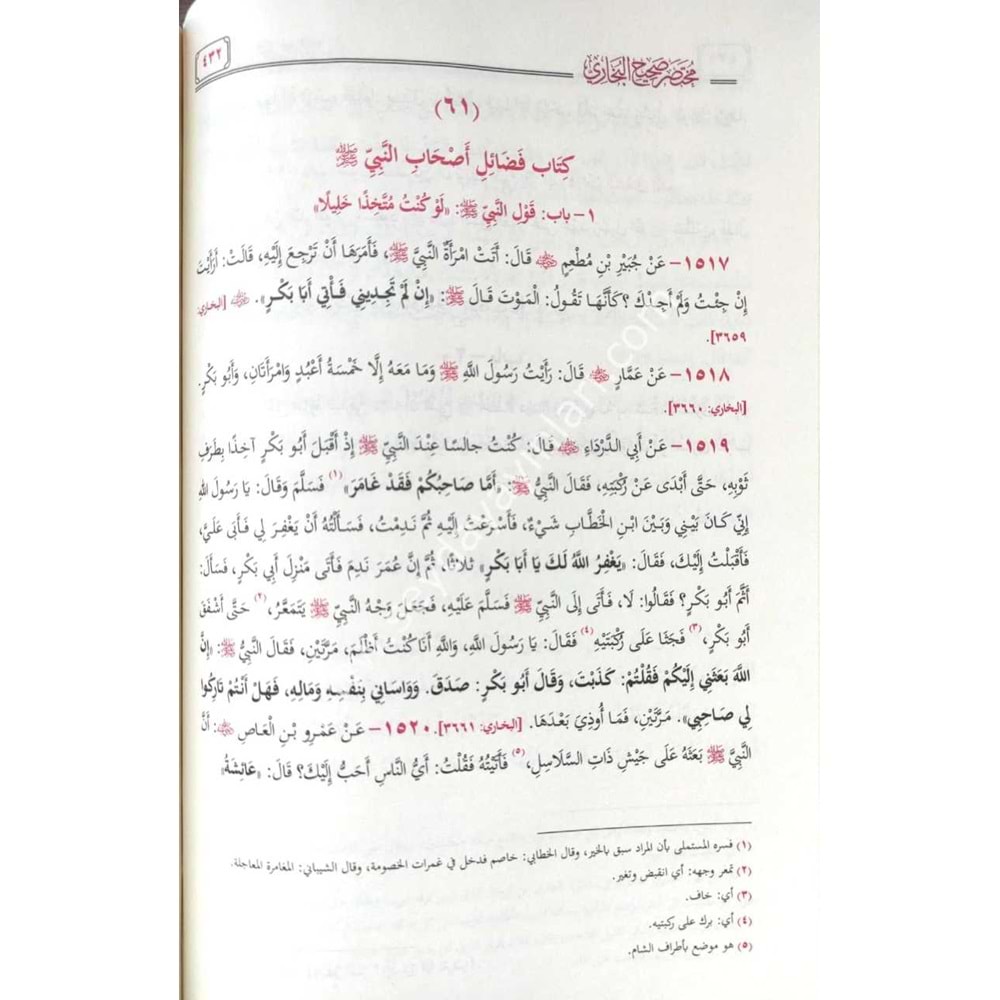 ٤٣٢
مختصر صحيح البخاري
(٦١)
كِتَاب فَضَائِلِ أَصْحَابِ النَّبِيِّ ﷺ
١- باب: قَوْلِ النَّبِيِّ ﷺ: «لَوْ كُنْتُ مُتَّخِذًا خَلِيلًا»
١٥١٧- عَنْ جُبَيْرِ بْنِ مُطْعِمٍ ﵁ قَالَ: أَتَتْ امْرَأَةٌ النَّبِيَّ ﷺ، فَأَمَرَهَا أَنْ تَرْجِعَ إِلَيْهِ، قَالَتْ: أَرَأَيْتَ
إِنْ جِئْتُ وَلَمْ أَجِدْكَ؟ كَأَنَّهَا تَقُولُ: الْمَوْتَ قَالَ ﷺ: «إِنْ لَمْ تَجِدِينِي فَأْتِي أَبَا بَكْرٍ». ﵁ [البخاري:
٣٦٥٩].
١٥١٨- عَنْ عَمَّارٍ ﵁ قَالَ: رَأَيْتُ رَسُولَ اللَّهِ ﷺ وَمَا مَعَهُ إِلَّا خَمْسَةُ أَعْبُدٍ وَامْرَأَتَانِ، وَأَبُو بَكْرٍ.
[البخاري: ٣٦٦٠].
١٥١٩- عَنْ أَبِي الدَّرْدَاءِ ﵁ قَالَ: كُنْتُ جالسًا عِنْدَ النَّبِيِّ ﷺ إِذْ أَقْبَلَ أَبُو بَكْرٍ آخِذًا بِطَرَفِ
ثَوْبِهِ، حَتَّى أَبْدَى عَنْ رُكْبَتِهِ، فَقَالَ النَّبِيُّ ﷺ: «أَمَّا صَاحِبُكُمْ فَقَدْ غَامَرَ» (١) فَسَلَّمَ وَقَالَ: يَا رَسُولَ اللهِ
إِنِّي كَانَ بَيْنِي وَبَيْنَ ابْنِ الْخَطَّابِ شَيْءٌ، فَأَسْرَعْتُ إِلَيْهِ ثُمَّ نَدِمْتُ، فَسَأَلْتُهُ أَنْ يَغْفِرَ لِي فَأَبَى عَلَيَّ،
فَأَقْبَلْتُ إِلَيْكَ، فَقَالَ: «يَغْفِرُ اللَّهُ لَكَ يَا أَبَا بَكْرٍ» ثلاثًا، ثُمَّ إِنَّ عُمَرَ نَدِمَ فَأَتَى مَنْزِلَ أَبِي بَكْرٍ، فَسَأَلَ:
أَثَمَّ أَبُو بَكْرٍ؟ فَقَالُوا: لَا، فَأَتَى إِلَى النَّبِيِّ ﷺ فَسَلَّمَ عَلَيْهِ، فَجَعَلَ وَجْهُ النَّبِيِّ ﷺ يَتَمَعَّرُ، (٢) حَتَّى أَشْفَقَ
أَبُو بَكْرٍ، (٣) فَجَثَا عَلَى رُكْبَتَيْهِ (٤) فَقَالَ: يَا رَسُولَ اللَّهِ، وَاللَّهِ أَنَا كُنْتُ أَظْلَمَ، مَرَّتَيْنِ، فَقَالَ النَّبِيُّ ﷺ: «إِنَّ
اللَّهَ بَعَثَنِي إِلَيْكُمْ فَقُلْتُمْ: كَذَبْتَ، وَقَالَ أَبُو بَكْرٍ: صَدَقَ. وَوَاسَانِي بِنَفْسِهِ وَمَالِهِ، فَهَلْ أَنْتُمْ تَارِكُوا
لِي صَاحِبِي». مَرَّتَيْنِ، فَمَا أُوذِيَ بَعْدَهَا. [البخاري: ٣٦٦١]. ١٥٢٠- عَنْ عَمْرِو بْنِ الْعَاصِ ﵁: أَنَّ
النَّبِيَّ ﷺ بَعَثَهُ عَلَى جَيْشِ ذَاتِ السَّلَاسِلِ، (٥) فَأَتَيْتُهُ فَقُلْتُ: أَيُّ النَّاسِ أَحَبُّ إِلَيْكَ؟ قَالَ: «عَائِشَةُ»
(١) فسره المستملى بأن المراد سبق بالخير، وقال الخطابي: خاصم فدخل في غمرات الخصومة، وقال الشيباني: المغامرة المعاجلة.
(٢) تمعر وجهه: أي انقبض وتغير.
(٣) أي: خاف.
(٤) أي: برك على ركبتيه.
(٥) هو موضع بأطراف الشام.